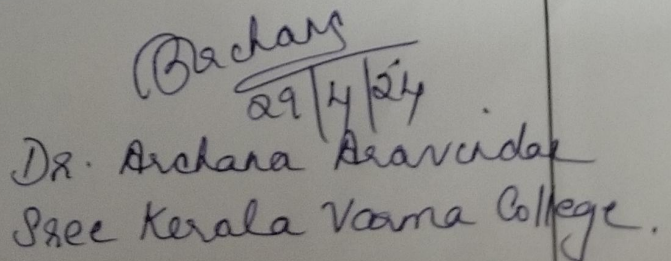 29/4/24
Dr. Archana Aravindan
Sree Kerala Varma College.